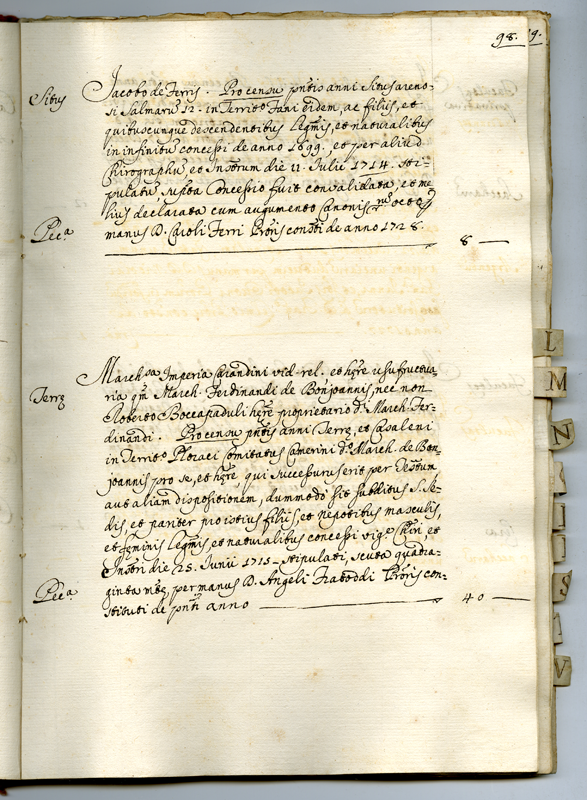 98. 9.
Situs
Jacobo de Ferris. Pro censu pntis anni Situs areno-
si Salmaru 12. in Territo Fani eidem, ac filijs, et
quibuscunque descendentibus legmis, et naturalibus
in infinitu concessi de anno 1699. et per aliud
Chirographu et Instrum die 11. Julii 1714. sti-
pulatu, iusta Concessio fuit convalidata, et me
lius declarata cum augumento Canonis octo
Pec.a
manus D. Caroli Ferri Proris constti de anno 1728.
8 —
March.sa Imperia Carandini vid. rel. et hęre usufructua-
ria qm March. Ferdinandi de Bonjoannis, nec non
Terrę
Roberto Boccapaduli hęre proprietario d. March. Fer-
dinandi. Pro censu pntis anni Terrę, et Casaleni
in Territo Ploraci Comitatus Camerini do March. de Bon-
joannis pro se, et hęre, qui successurus erit per Testum,
aut aliam dispositionem, dummodo sit subditus S. Se-
dis, et pariter pro istius filijs, et Nepotibus masculis,
et feminis legmis et naturalibus concessi vig. Chiri, et
Instri die 25. Junii 1715. stipulati, scuta quadra-
Pec.a
ginta mtę, per manus D. Angeli Proris con-
stituti de pnti anno —
40 —
L
M
N
S
V